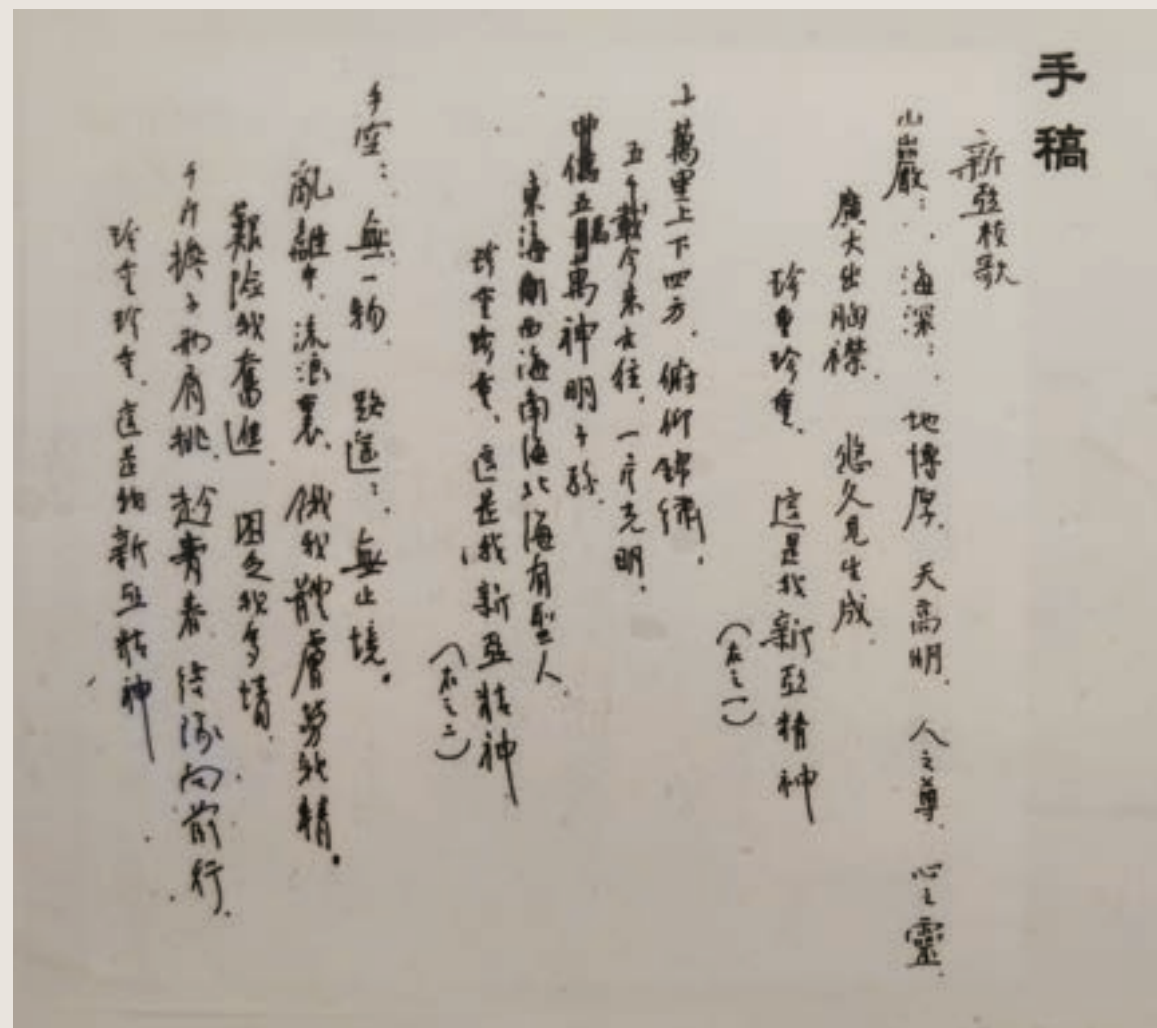 手稿
新亞校歌
山巖：、海深：、地博厚、天高明、人之尊、心之靈、
廣大出胸襟、悠久見生成、
珍重珍重、這是我新亞精神
（右之一）
十萬里上下四方、俯仰錦繡、
五千載今來古往、一片光明、
五萬萬神明子孫、
東海西海南海北海有聖人、
珍重珍重、這是我新亞精神
（右之二）
手空：、無一物、路遙：、無止境。
亂離中、流浪裏、餓我體膚勞我精。
艱險我奮進、困乏我多情、
千斤擔子兩肩挑、趁青春、結隊向前行、
珍重珍重、這是我新亞精神